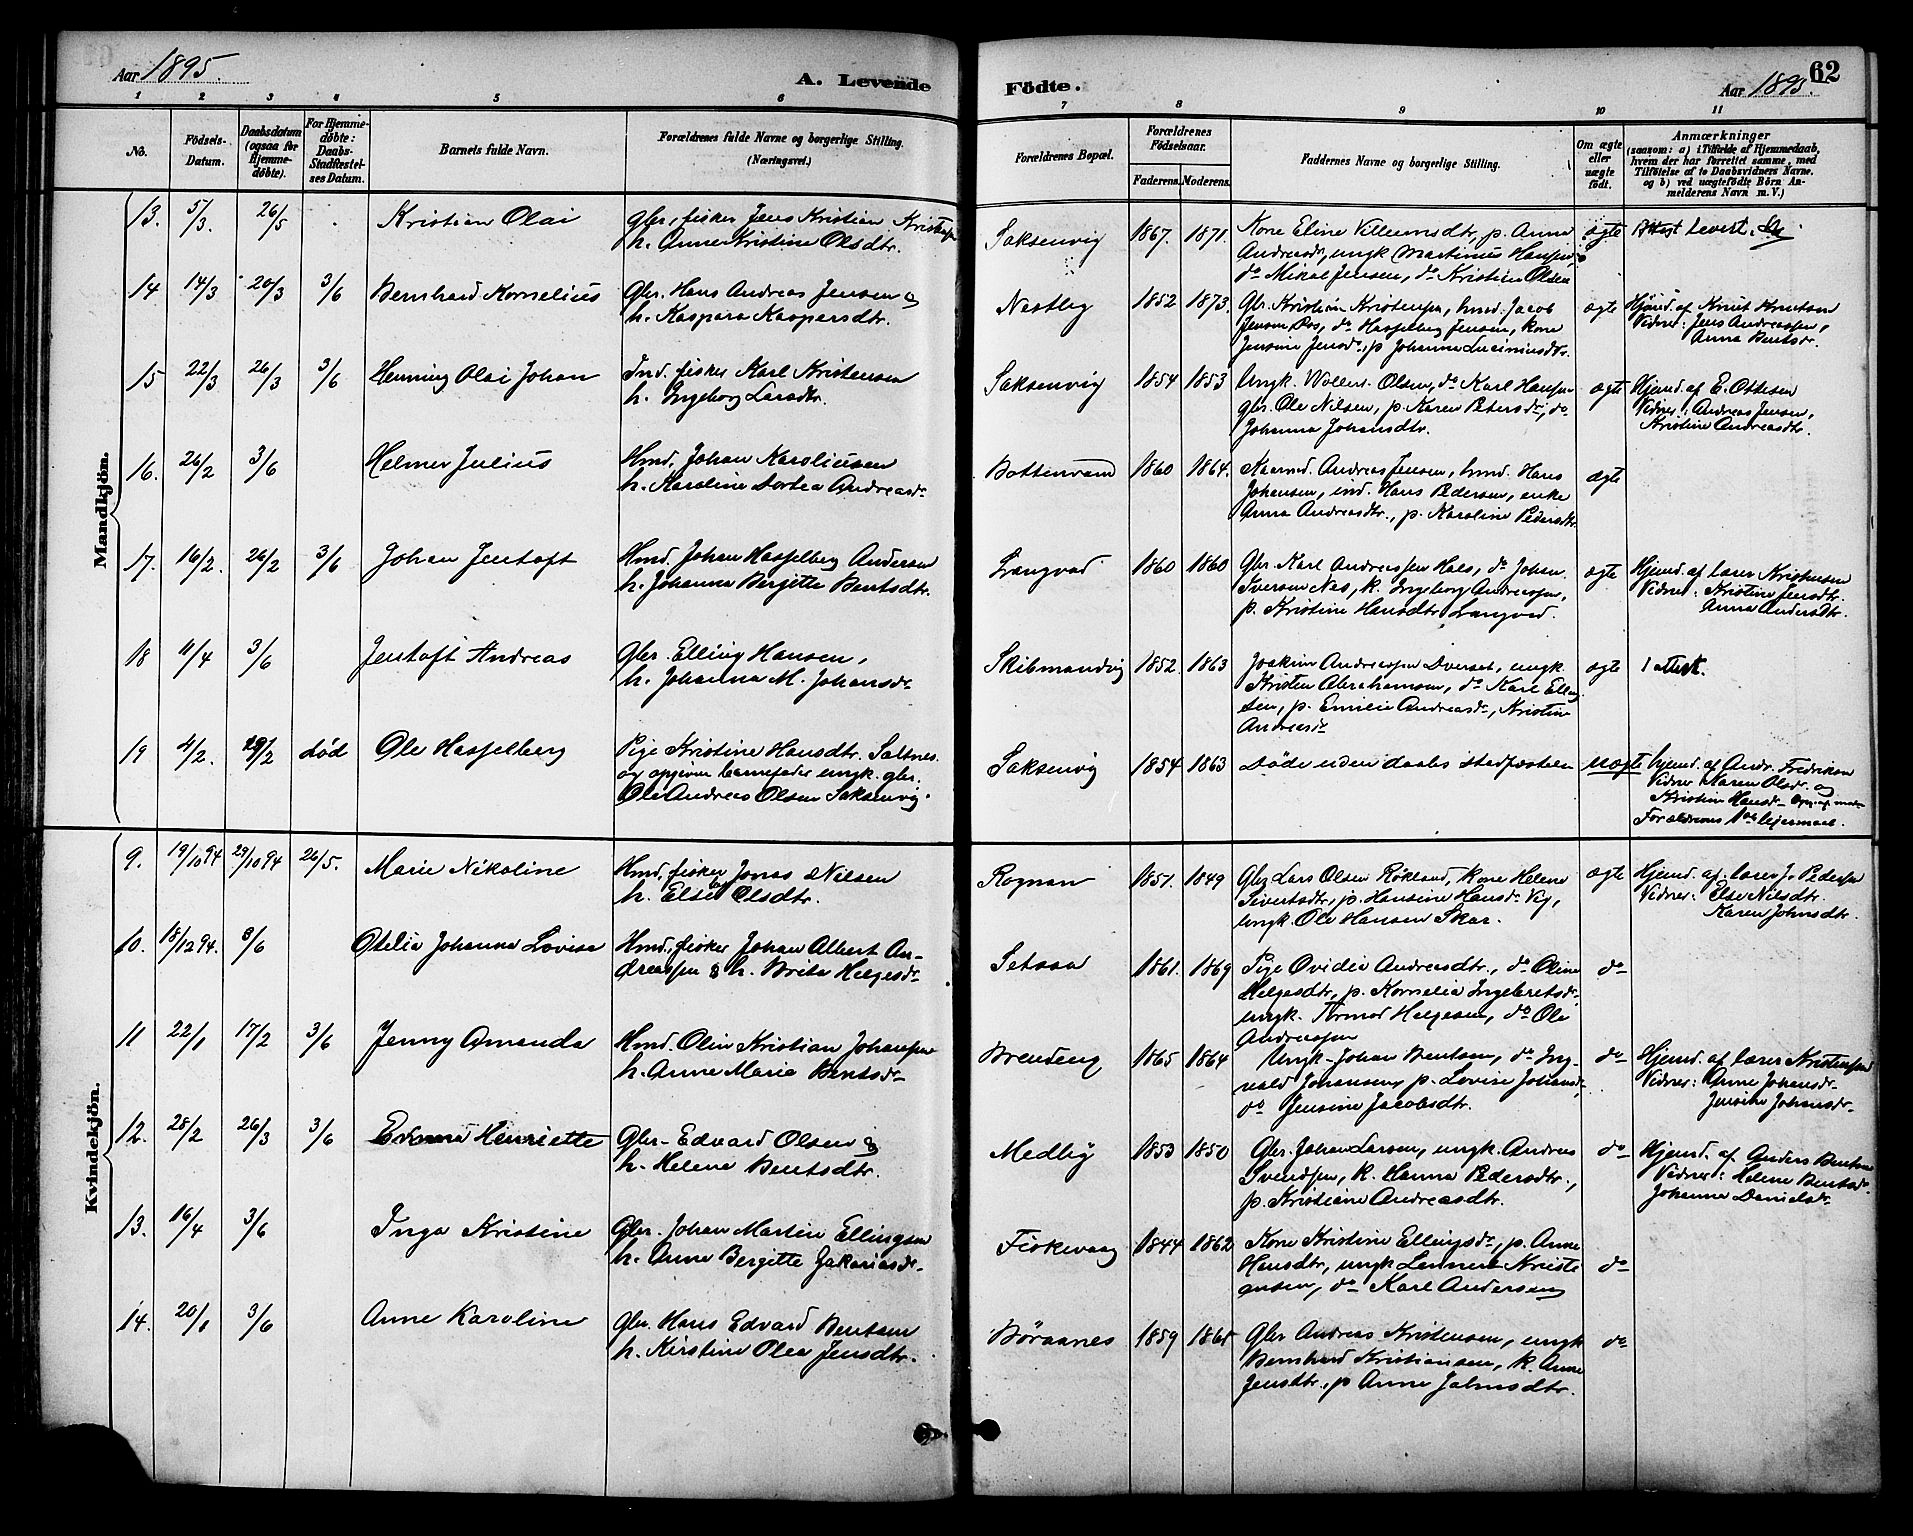 Aar 1895.
A. Levende
Födte.
Aar 1895.
62
1 2 3 4 5 6 7 8 9 10 11
No.
Födsels-
Datum.
Daabsdatum
(ogsaa for
Hjemme-
døbte).
For Hjemme-
døbte:
Daabs-
Stadfæstel-
ses Datum.
Barnets fulde Navn.
Forældrenes fulde Navne og borgerlige Stilling.
(Næringsvei.)
Forældrenes Bopæl.
Forældrenes
Födselsaar.
Faderens. Moderens.
Faddernes Navne og borgerlige Stilling.
Om ægte
eller
uægte
födt.
Anmærkninger
(saasom: a) i Tilfælde af Hjemmedaab,
hvem der har forrettet samme, med
Tilföielse af to Daabsvidners Navne,
og b) ved uægtefödte Börn An-
melderens Navn m. V.)
Mandkjön.
13. 5/3. 26/5 Kristian Olai
gbr. fisker Jens Kristian
h. Anne Kristine Olsdtr.
Saksenvig 1867. 1871.
Kone Eline Villumsdtr, p. Anna
Andreasdr, ungk Martinius Hansen,
do Mikal Jensen, do Kristian Olsen
ægte
levert.
14 14/3 20/3 3/6 Bernhard Kornelius
Gbr. Hans Andreas Jensen og
h. Kaspara Kaspersdtr.
Nestby 1852 1873.
Gbr. Kristian Kristensen, hmd. Jacob
Jensen, do Hasselberg Jensen, kone
Jensine Jensdr., p. Johanna
ægte
Hjemd. af Knut Knutsen
Vidner: Jens Andreassen,
Anna Bentsdr.
15 22/3 26/3 3/6 Henning Olai Johan
Ind. fisker Karl Kristensen
h. Ingeborg Larsdtr.
Saksenvig 1854 1853
Ungk. Wollert Olsen, do Karl Hansen
gbr. Ole Nilsen, p. Karen Petersdr, do
Johanna Johansdtr.
ægte
Hjemd. af E. Ottesen
Vidner: Andreas Jensen,
Kristine Andreasdtr.
16. 26/2 3/6 Helmer Julius
Hmd. Johan Karoliusen
h. Karoline Dortea Andreasdr
Bottenvand 1860 1864.
Andreas Jensen, hmd. Hans
Johansen, ind. Hans Pedersen, enke
Anna Andreasdtr., p. Karoline Pedersdtr
ægte
17. 16/2. 26/2 3/6 Johan Jentoft
Hmd. Johan Hasselberg Andersen
h. Johanna Bergitte Bentsdtr.
Langvad 1860 1860
Gbr. Karl Andreassen Hals, do Johan
Iversen Nes, k. Ingeborg Andreassen,
p. Kristine Hansdtr Langvad.
ægte
Hjemd. af lærer Kristensen
Vidner: Kristine Jensdtr.
Anna Andersdtr.
18 11/4 3/6 Jentoft Andreas
Gbr. Elling Hansen,
h. Johanna M. Johansdr
Skibmandvig 1852. 1863
Joakim Andreassen Dverset, ungk.
Kristen Abrahamsen, do Karl Elling
sen, p. Emilie Andreasdr, Kristine
Andreasdr
ægte
1 attest.
19 4/2. 19/2 død Ole Hasselberg
Pige Kristine Hansdtr. Saltnes
og opgiven barnefader ungk. gbr.
Ole Andreas Olsen Saksenvig.
Saksenvig 1854 1863
Døde uden daabs stadfæstelse
uægte
hjemd. af Andr. Fredriksen
Vidner Karen Olsdr. og
Kristine Hansdr
Forældrenes 1ste leiermaal.
Kvindekjön.
9. 19/10 94 29/10 94 26/5. Marie Nikoline
Hmd. fisker Jonas Nilsen
h. Else Olsdtr.
Rognan 1851. 1849
Gbr Lars Olsen Røkland, Kone Helene
Sivertsdtr, p. Hansine Hansdr Vig,
Ungk. Ole Hansen Skar.
ægte
Hjemd. af lærer J. Pedersen
Vidner: Else Nilsdtr.
Karen Johnsdtr.
10. 18/12 94. 3/6 Otelia Johanna Lovise
Hmd. fisker Johan Albert An-
dreassen & h. Brita Helgesdr
Setsaa 1861. 1869
Pige Ovidia Andreasdtr., do Oline
Helgesdtr, p. Kornelia Ingebretsdr
ungk. Tormod Helgesen, do Ole
Andreassen
do
11 22/1 17/2 3/6 Jenny Amanda
Hmd. Olin Kristian Johansen
h. Anne Marie Bentsdr
Brendeng 1865 1864
Ungk. Johan Bentsen, do Ing-
vald Johansen, p. Lovise Johansdr,
do Jensine Jacobsdtr.
do
Hjemd. af lærer Kristensen
Vidner: Anne Johansdr
Jensine Johansdr
12. 28/2 26/3 3/6 Henriette
Gbr. Edvard Olsen &
h. Helena Bentsdtr.
Medby 1853 1850
Gbr. Johan Larsen, ungk. Andreas
Svendsen, k. Hanna Pedersdtr.,
p. Kristiane Andreasdtr.
do
Hjemd. af Anders Bentsen
Vidner: Helene Bentsdr.
Johanna Danielsdr
13. 16/4 3/6 Inga Kristine
Gbr. Johan Martin Ellingsen
h. Anne Bergitte Zakariasdr
Fiskevaag 1844 1862
Kone Kristine Ellingsdr, p. Anne
Hansdtr, ungk Lennert Kriste
ensen, do Karl Andersen
do
14. 20/1 3/6 Anne Karoline
Gbr. Hans Edvard Bentsen
h. Kirstine Olea Jensdtr.
Børaanes 1859 1865
Gbr Andreas Kristensen, ungk
Bernhard Kristiansen, k. Anne
Jensdtr., p Anne Johnsdtr.
do